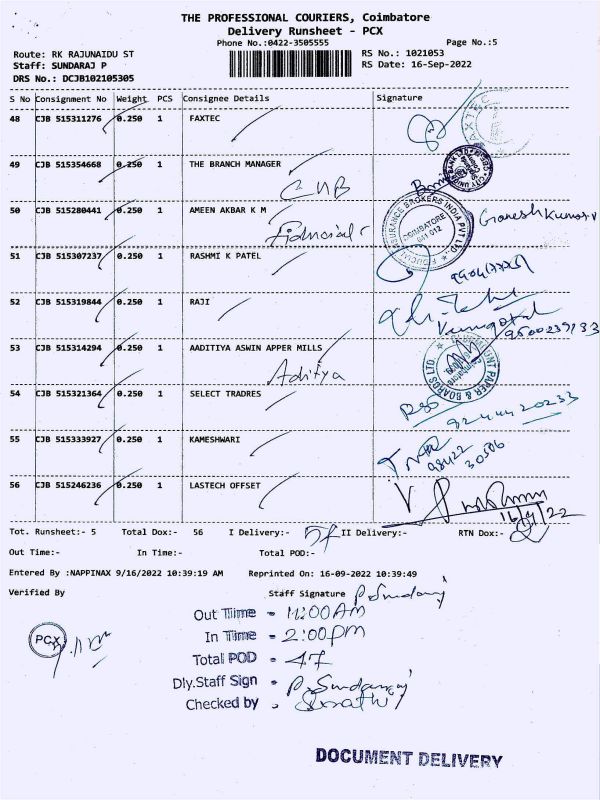 THE PROFESSIONAL COURIERS, Coimbatore
Delivery Runsheet - PCX
Phone No.:0422-3505555 Page No.:5
Route: RK RAJUNAIDU ST RS No.: 1021053
Staff: SUNDARAJ P RS Date: 16-Sep-2022
DRS No.: DCJB102105305
S No Consignment No Weight PCS Consignee Details Signature
48 CJB 515311276 0.250 1 FAXTEC
49 CJB 515354668 0.250 1 THE BRANCH MANAGER
CUB
50 CJB 515280441 0.250 1 AMEEN AKBAR K M Ganesh Kumar V
COIMBATORE
641 012
51 CJB 515307237 0.250 1 RASHMI K PATEL
52 CJB 515319844 0.250 1 RAJI
Venugopal
9500239133
53 CJB 515314294 0.250 1 AADITIYA ASWIN APPER MILLS
Aditya
54 CJB 515321364 0.250 1 SELECT TRADRES
55 CJB 515333927 0.250 1 KAMESHWARI
98422
30506
56 CJB 515246236 0.250 1 LASTECH OFFSET
16/9/22
Tot. Runsheet:- 5 Total Dox:- 56 I Delivery:- II Delivery:- RTN Dox:-
Out Time:- In Time:- Total POD:-
Entered By :NAPPINAX 9/16/2022 10:39:19 AM Reprinted On: 16-09-2022 10:39:49
Verified By Staff Signature P. Sundaraj
PCX
Out Time - 11:00 AM
In Time - 2:00 pm
Total POD - 47
Dly.Staff Sign - P. Sundaraj
Checked by -
DOCUMENT DELIVERY